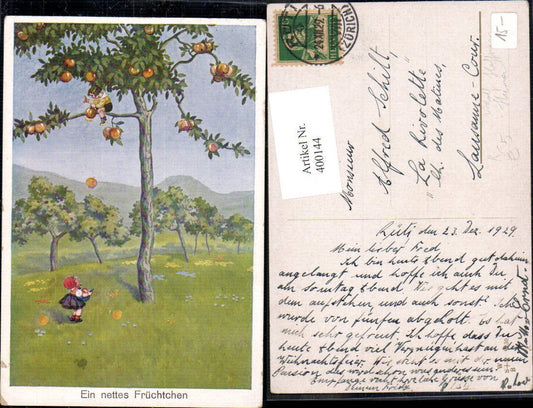 Ein nettes Früchtchen
Artikel Nr.
400144
15-
(ZÜRICH)
Monsieur
Alfred Schilt,
"La Rivolette"
Ch. des Málines,
Lausanne-Cour.
Rüti den 23. Dez. 1929
Mein lieber Fred.
Ich bin heute Abend gut daheim
angelangt und hoffe ich auch Du
am Sonntag Abend. Wie geht es mit
dem aufstehen und auch sonst? Ich
wurde von fünfen abgeholt. Es hat
mich sehr gefreut. Ich hoffe dass Du
heute Abend viel Vergnügen hast an der
Weihnachtsfeier.
Empfange recht herzliche Grüsse von